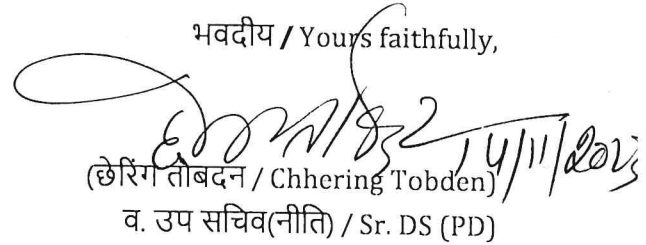 भवदीय / Yours faithfully,
14/11/2023
(छेरिंग तोबदन / Chhering Tobden)
व. उप सचिव(नीति) / Sr. DS (PD)